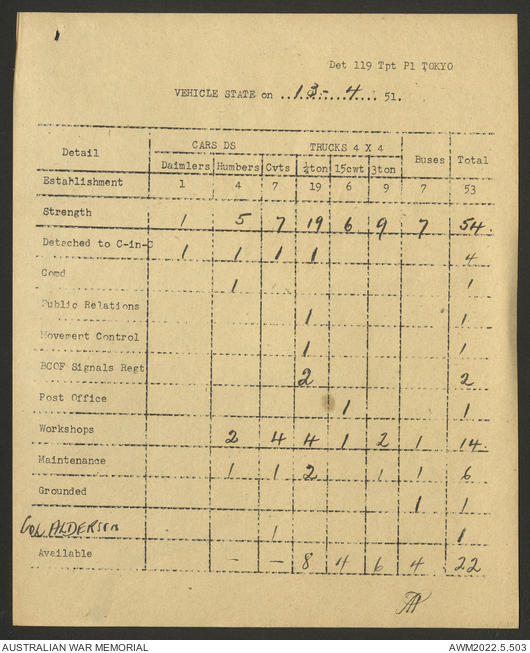 Det 119 Tpt Pl TOKYO
VEHICLE STATE on ..13-..4.... 51.
Detail CARS DS TRUCKS 4 X 4 Buses Total
Daimlers Humbers Cvts ¼ton 15cwt 3ton
Establishment 1 4 7 19 6 9 7 53
Strength 1 5 7 19 6 9 7 54.
Detached to C-in-C 1 1 1 1 4
Comd 1 1
Public Relations 1 1
Movement Control 1 1
BCOF Signals Regt 2 2
Post Office 1 1
Workshops 2 4 4 1 2 1 14.
Maintenance 1 1 2 1 1 6
Grounded 1 1
Col ALDERSON 1 1
Available - - 8 4 6 4 22
AUSTRALIAN WAR MEMORIAL AWM2022.5.503